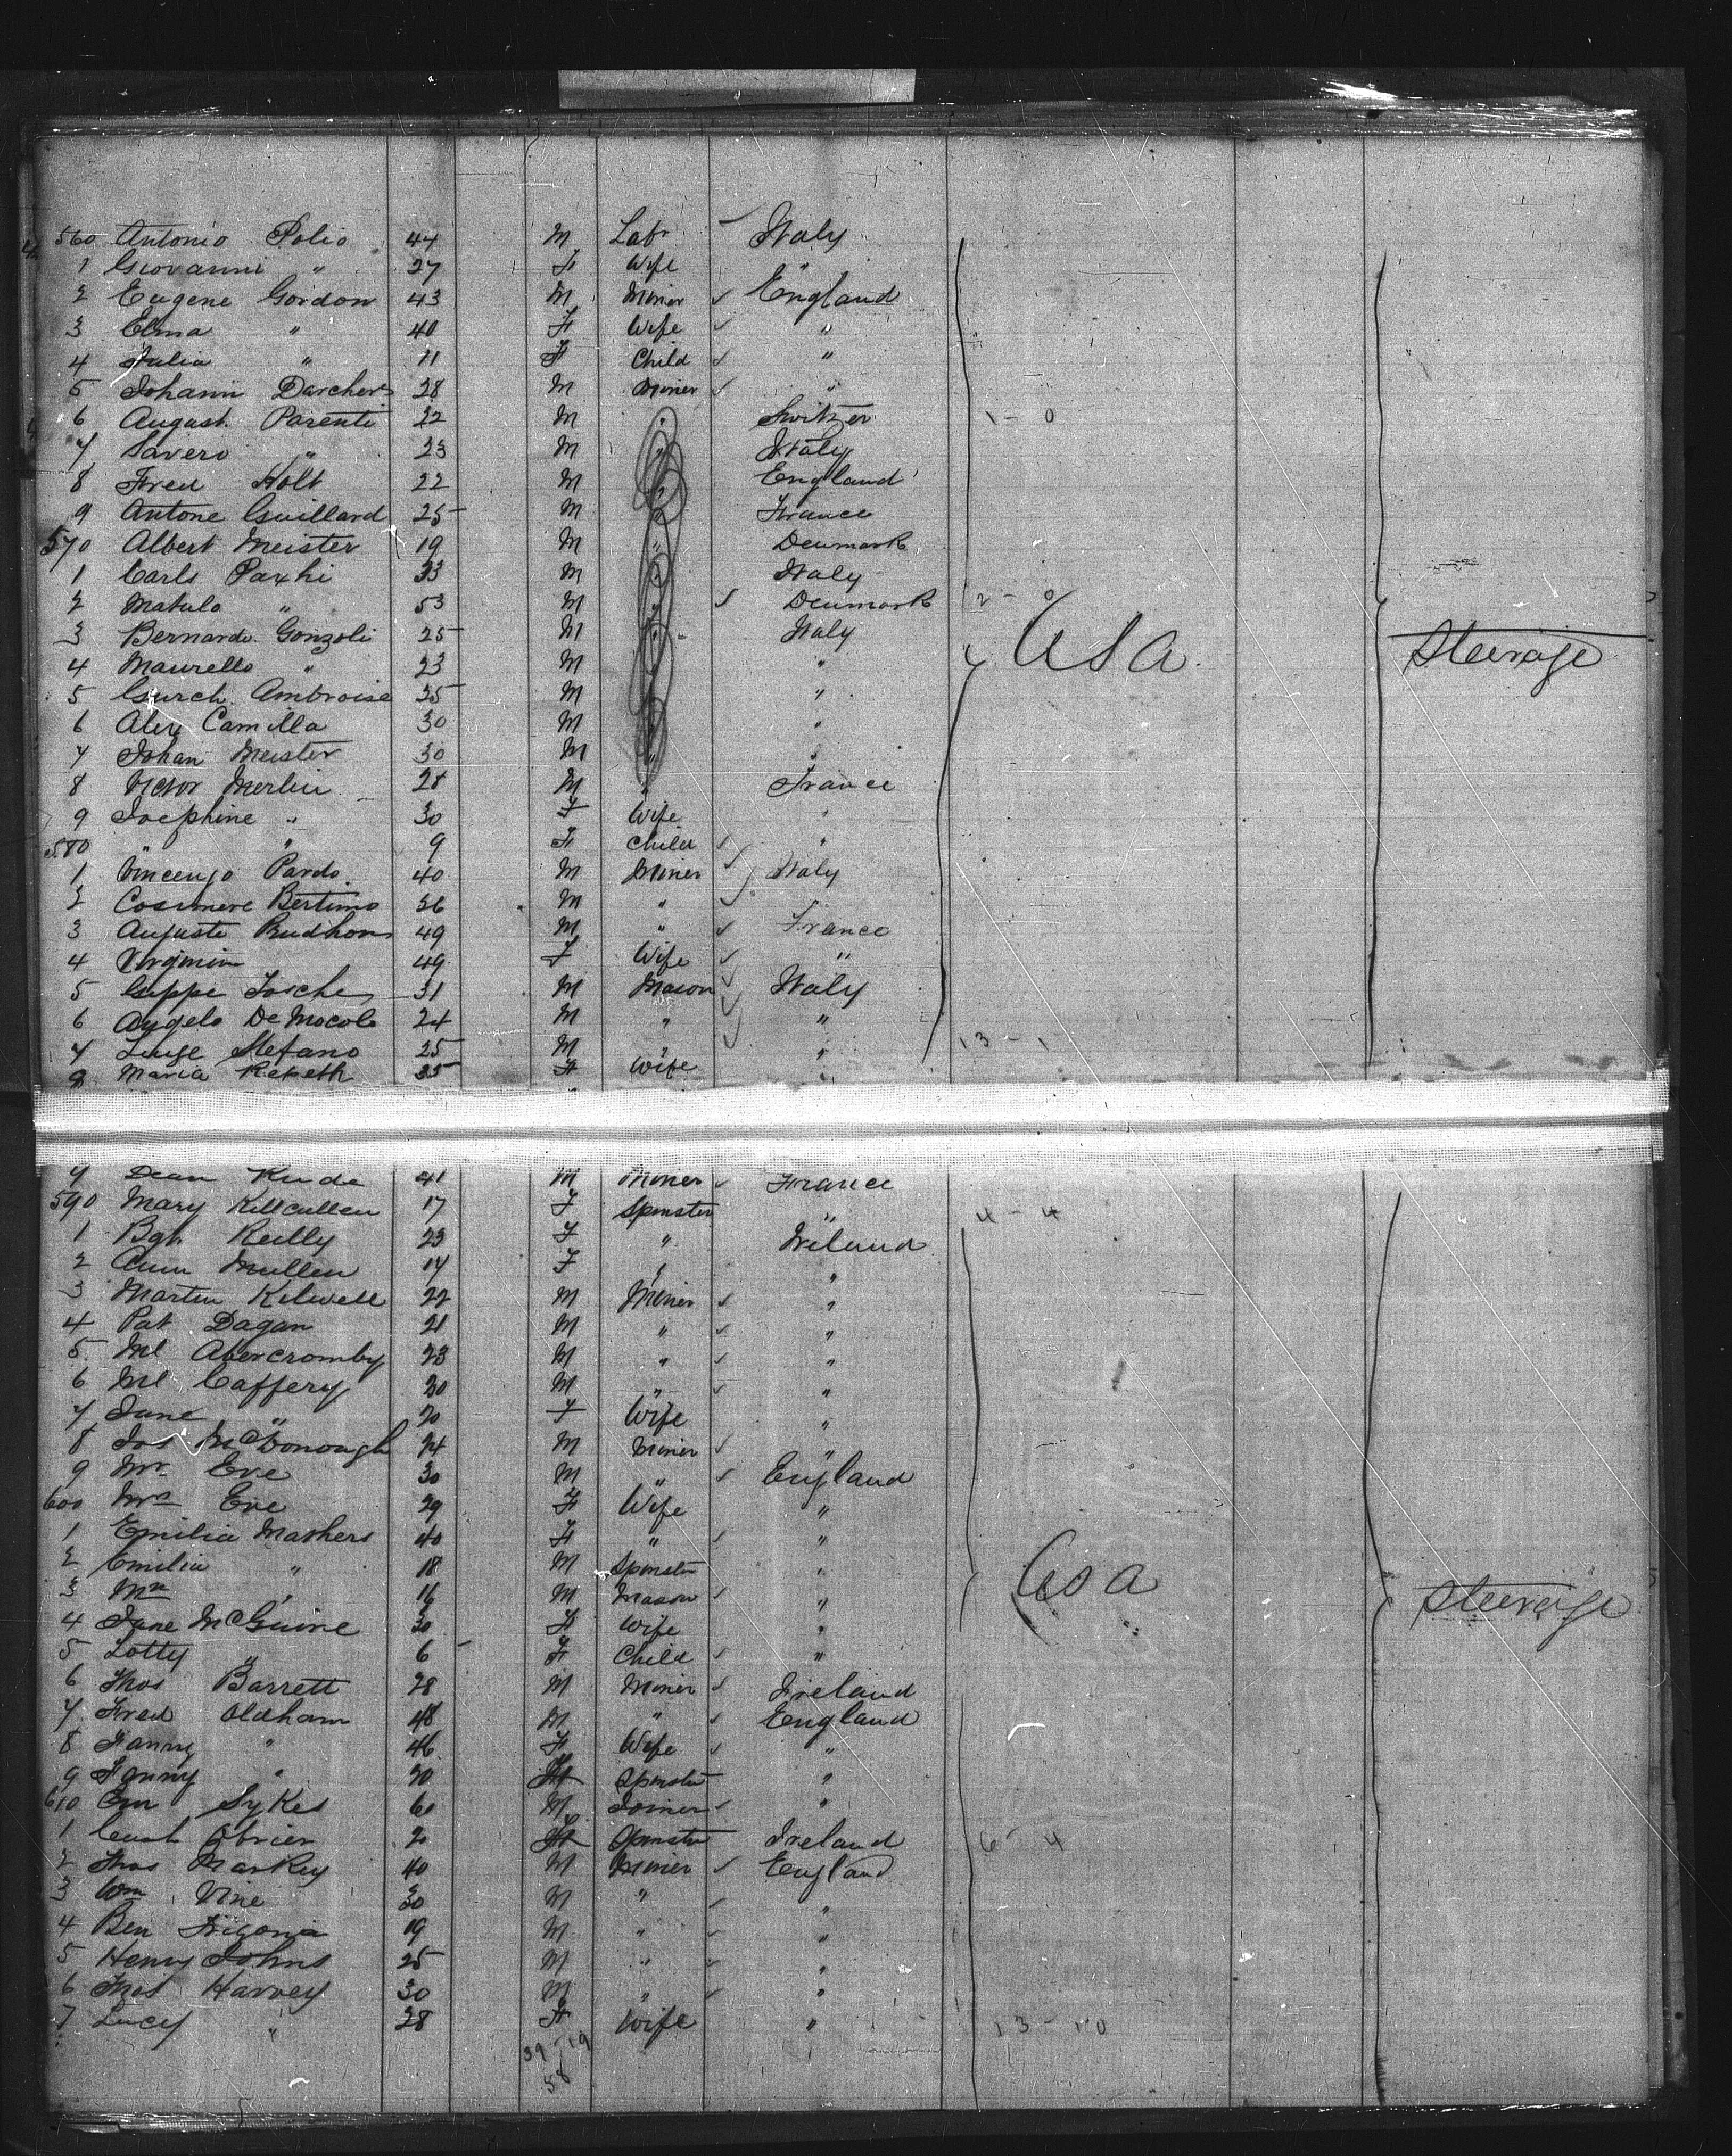 560 Antonio Polio 44 M Labr Italy
1 Giovanni " 27 F Wife "
2 Eugene Gordon 43 M Miner England
3 Elma " 40 F Wife "
4 Julia " 11 F Child "
5 Johann Darchers 28 M Miner "
6 August Parenti 32 M " Switzer 1 - 0
7 Savero " 23 M " Italy
8 Fred Holt 22 M " England
9 Antone Guillard 25 M " France
570 Albert Meister 19 M " Denmark
1 Carls Paxhi 33 M " Italy
2 Matulo " 53 M " Denmark 2 - 0
3 Bernardo Gonzoli 25 M " Italy USA Steerage
4 Maurello " 23 M " "
5 Ambroise 25 M " "
6 Alex Camilla 30 M " "
7 Johan Meister 30 M " "
8 Victor Merlin 28 M " France
9 Josephine " 30 F Wife "
580 " " 9 F Child "
1 Vincenzo Pardo 40 M Miner Italy
2 Cosimere Bertimo 26 M "
3 Auguste Rudhon 49 M " France
4 Virginia 49 F Wife "
5 Guppe Tosche 31 M Mason Italy
6 Angelo De Mocolo 24 M " "
7 Luige Stefano 25 M " " 13 - 1
8 Maria Kepeth 35 F Wife "
9 Dean Rude 41 M Miner France
590 Mary Killcullen 17 F Spinster " 4 - 4
1 Bgt Reilly 23 F " Ireland
2 Ann Mullen 17 F " "
3 Martin Kilwell 22 M Miner "
4 Pat Dagan 21 M " "
5 Ml Abercromby 23 M " "
6 Ml Caffery 30 M " "
7 Jane " 20 F Wife "
8 Jos McDonough 24 M Miner "
9 Mr Eve 30 M " England
600 Mrs Eve 29 F Wife "
1 Emilia Mashers 40 F " "
2 Emilia " 18 M Spinster "
3 Mr " 16 M Mason " USA Steerage
4 Jane McGuire 30 F Wife "
5 Lotty " 6 F Child "
6 Thos Barrett 28 M Miner Ireland
7 Fred Oldham 48 M " England
8 Fanny " 46 F Wife "
9 Fanny " 20 F Spinster "
610 Em Sykes 60 M Joiner "
1 Obrien 20 F Spinster Ireland 6 - 4
2 Thos Markey 40 M Miner England
3 Wm Vine 30 M " "
4 Ben Trigonia 19 M " "
5 Henry Johns 25 M " "
6 Thos Harvey 30 M " "
7 Lucy " 28 F Wife " 13 - 10
39 - 19
58